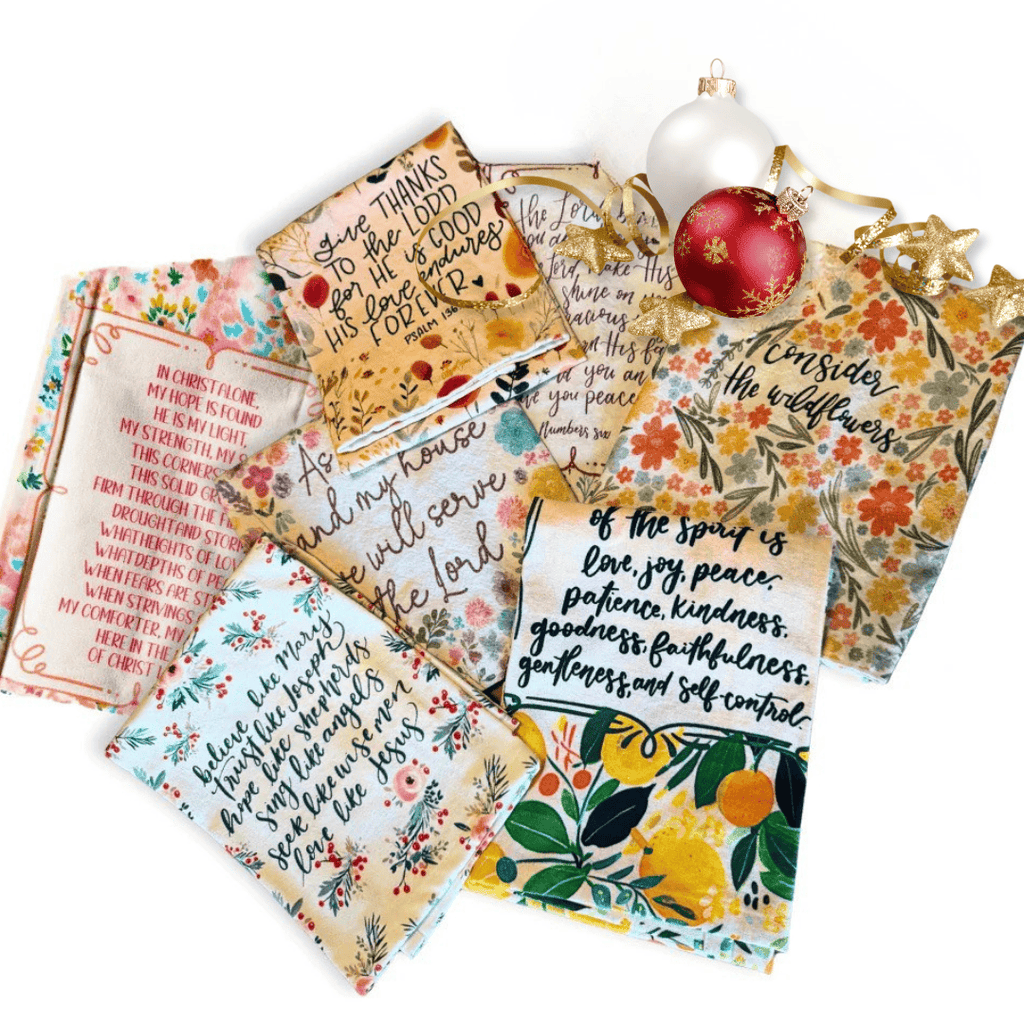 give THANKS
TO the LORD
for HE is GOOD
HIS love endures
FOREVER
PSALM 136
the Lord
you
Lord, make His
shine on
gracious
His
you an
you peace
Numbers six
consider
the wildflowers
IN CHRIST ALONE,
MY HOPE IS FOUND
HE IS MY LIGHT,
MY STRENGTH, MY S
THIS CORNERS
THIS SOLID GR
FIRM THROUGH THE FI
DROUGHT AND STORM
WHAT HEIGHTS OF LOV
WHAT DEPTHS OF PE
WHEN FEARS ARE ST
WHEN STRIVINGS
MY COMFORTER, MY
HERE IN THE
OF CHRIST I
As
and my house
we will serve
the Lord
believe like Mary
trust like Joseph
hope like shepherds
sing like angels
seek like wise men
love like Jesus
of the spirit is
love, joy, peace,
patience, kindness,
goodness, faithfulness,
gentleness, and self-control